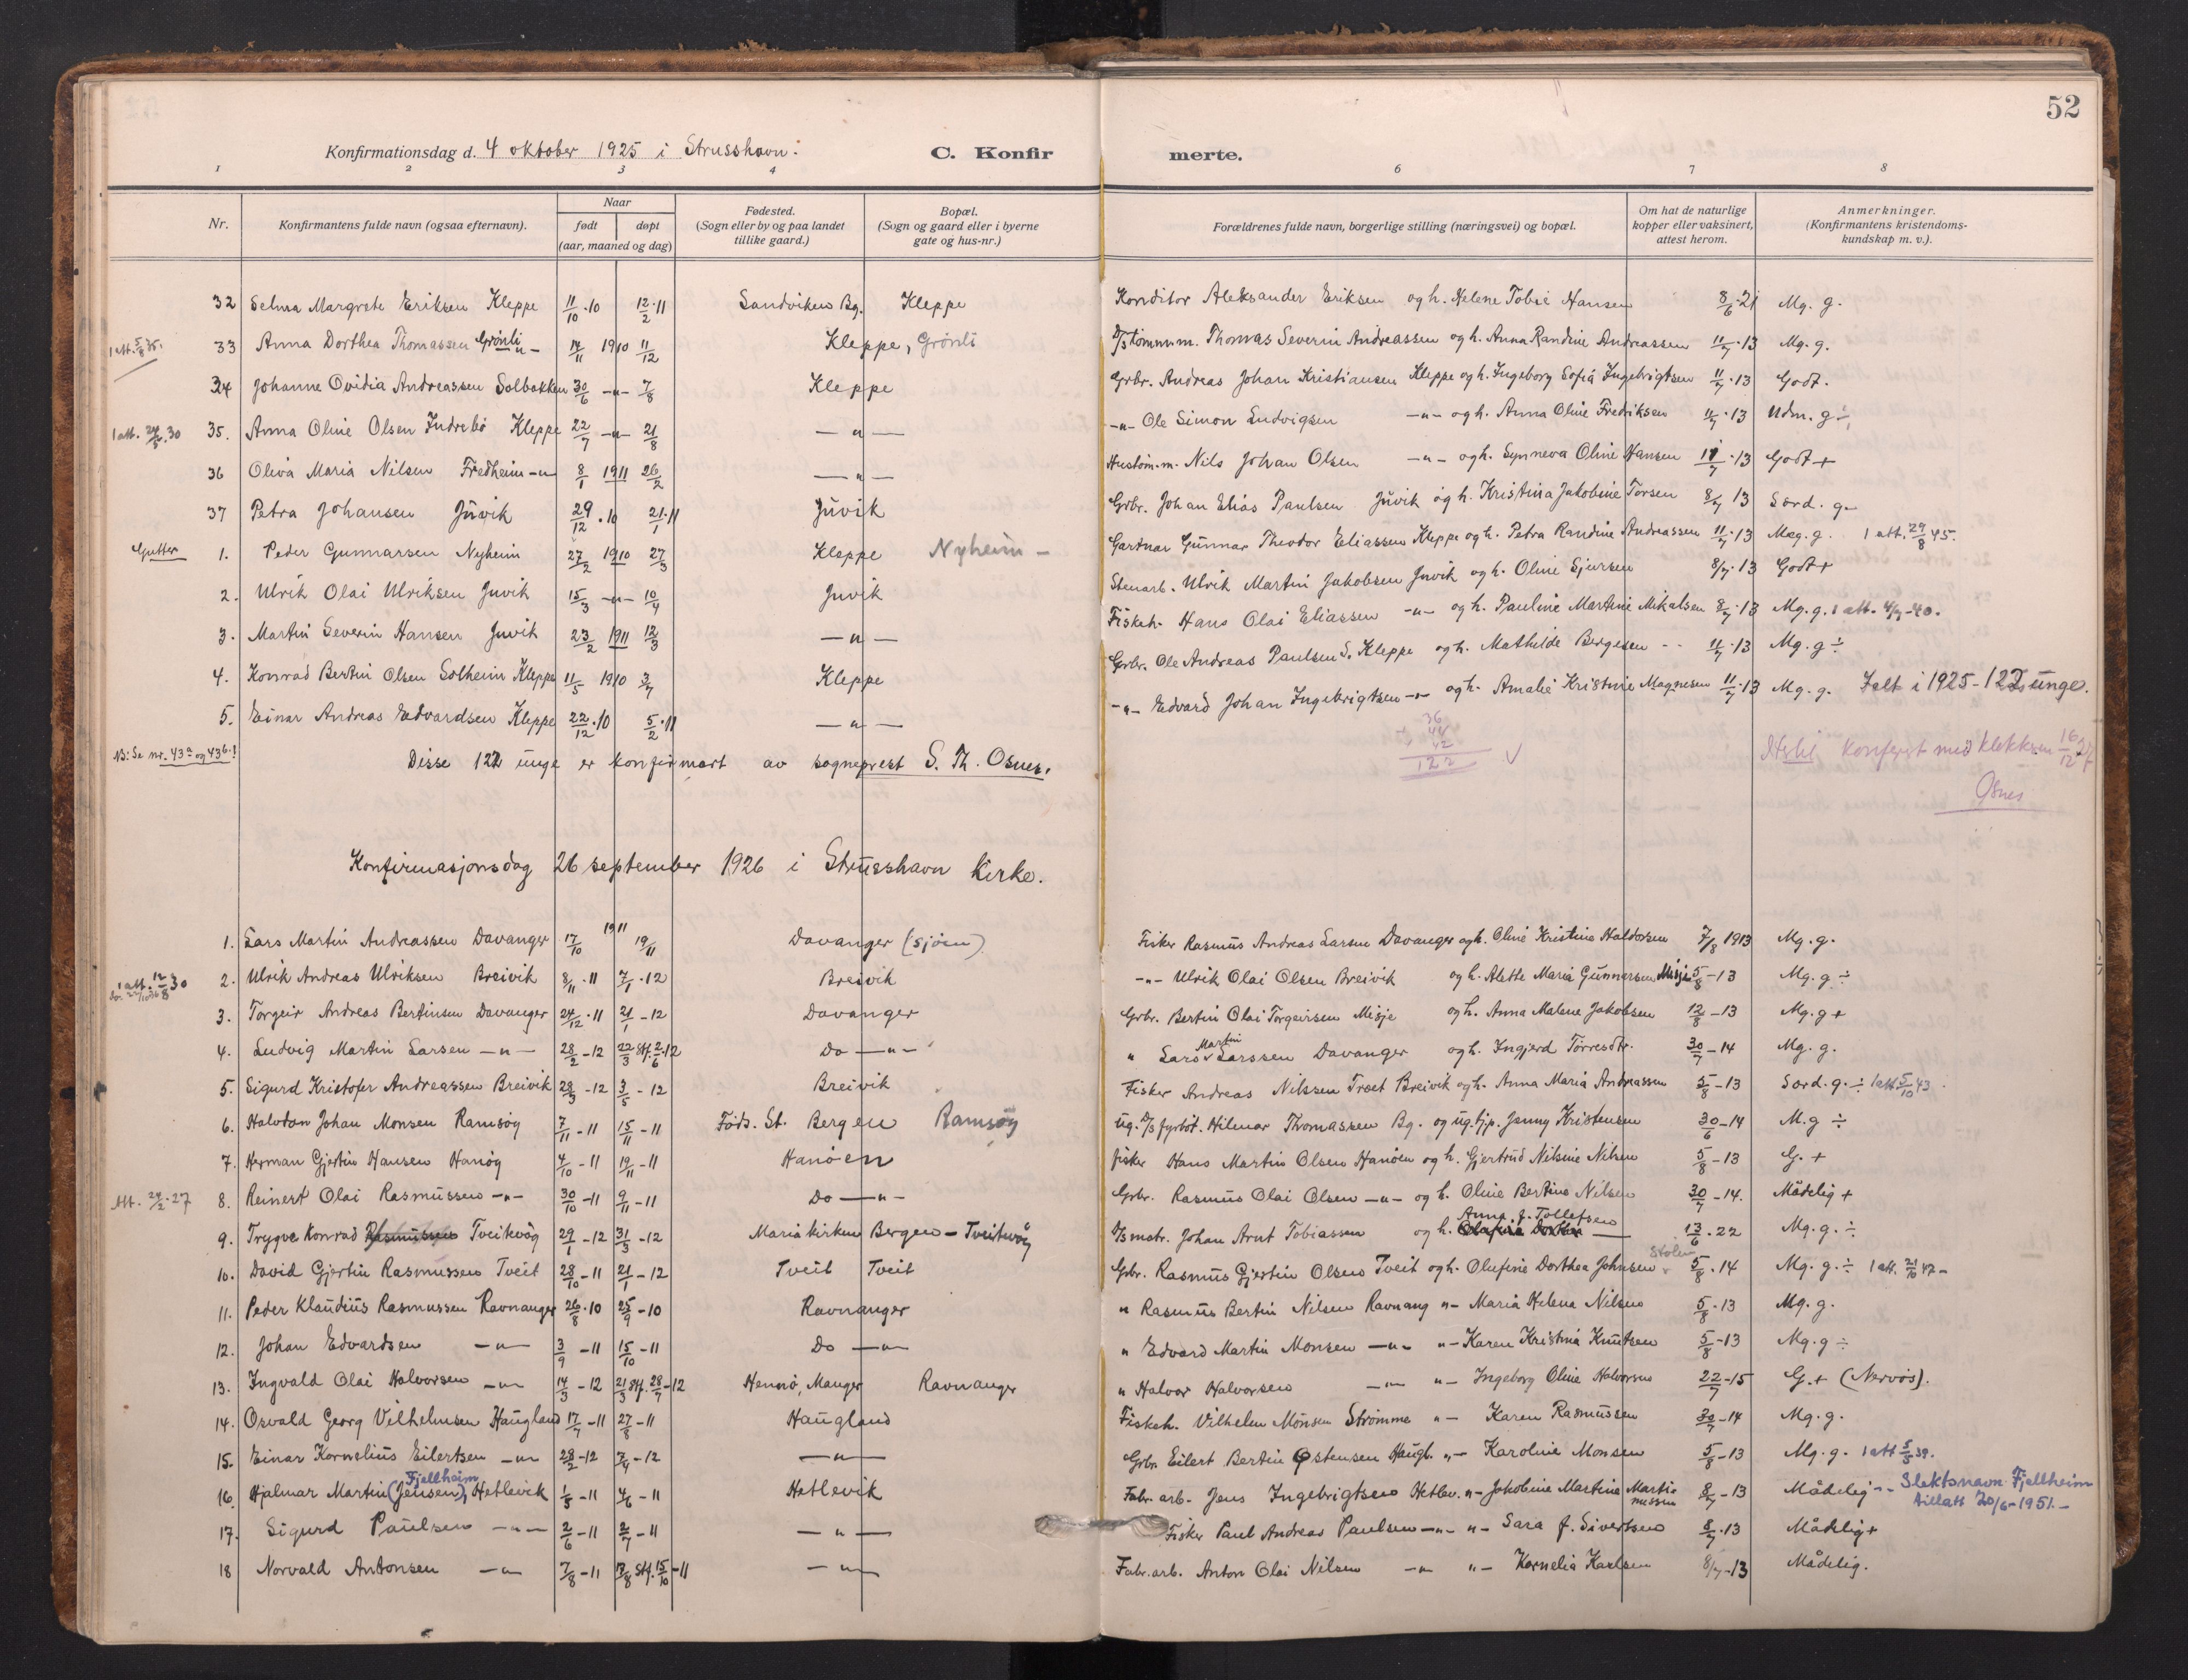 52
Konfirmationsdag d. 4 oktober 1925 i Strusshavn. C. Konfir merte.
1 2 3 4 6 7 8
Nr. Konfirmantens fulde navn (ogsaa efternavn). Naar født døpt (aar, maaned og dag) Fødested. (Sogn eller by og paa landet tillike gaard.) Bopæl. (Sogn og gaard eller i byerne gate og hus-nr.) Forældrenes fulde navn, borgerlige stilling (næringsvei) og bopæl. Om hat de naturlige kopper eller vaksinert, attest herom. Anmerkninger. (Konfirmantens kristendoms-kundskap m. v.).
32 Selma Margrete Eriksen Kleppe 11/10·10 12/2·11 Sandviken Bg. Kleppe Konditor Aleksander Eriksen og h. Helene Tobie Hansen 8/6·21 Mg. g.
1 att. 5/8 35. 33 Anna Dorthea Thomassen Grönli -"- 14/11 1910 11/12 Kleppe, Grönli D/s tömmerm. Thomas Severin Andreassen og h. Anna Randine Andreassen 11/7·13 Mg. g.
34 Johanne Ovidia Andreassen Solbakken 30/6 -"- 7/8 Kleppe Grbr. Andreas Johan Kristiansen Kleppe og h. Ingeborg Sofia Ingebrigtsen 11/7·13 Godt.
1 att. 24/5.30 35. Anna Oline Olsen Indrebö Kleppe 22/7 -"- 21/8 -"- -"- Ole Simon Ludvigsen -"- og h. Anna Oline Fredriksen 11/7·13 Udm. g÷
36 Oliva Maria Nilsen Fredheim -"- 8/1 1911 26/2 -"- Hustöm.m. Nils Johan Olsen -"- og h. Synneva Oline Hansen 11/7·13 Godt +
37 Petra Johansen Juvik 29/12·10 21/1·11 Juvik Grbr. Johan Elias Paulsen Juvik og h. Kristina Jakobine Torsen 8/7 13 Særd. g.
Gutter 1. Peder Gunnarsen Nyheim 27/2 1910 27/3 Kleppe Nyheim - Gartnar Gunnar Theodor Eliassen Kleppe og h. Petra Randine Andreassen 11/7·13 Meg. g. 1 att. 29/8 45.
2. Ulrik Olai Ulriksen Juvik 15/3 -"- 10/4 Juvik Stenarb. Ulrik Martin Jakobsen Juvik og h. Oline Sjursen 8/7·13 Godt+
3. Martin Severin Hansen Juvik 23/2 1911 12/3 -"- Fiskeh. Hans Olai Eliassen -"- og h. Pauline Martine Mikalsen 8/7·13 Mg. g. 1 att. 4/7-40.
4. Konrad Bertin Olsen Solheim Kleppe 11/5 1910 3/7 Kleppe Grbr. Ole Andreas Paulsen S. Kleppe og h. Mathilde Bergesen -- 11/7·13 Mg. g ÷
5. Einar Andreas Edvardsen Kleppe 22/12·10 5/2·11 -"- -"- Edvard Johan Ingebrigtsen -"- og h. Amalie Kristine Magnesen 11/7·13 Mg. g. Ialt i 1925 - 122 unge.
NB: Se nr. 43a og 43b! Disse 122 unge er konfirmert av sogneprest S. Th. Osnes. 36 44 42 122 konferert med klokkeren 16/12 27
Osnes
Konfirmasjonsdag 26 september 1926 i Strusshavn kirke.
1. Lars Martin Andreassen Davanger 17/10 1911 19/11 Davanger (sjöen) Fisker Rasmus Andreas Larsen Davanger og h. Oline Kristine Haldorsen 7/8 1913 Mg. g.
1 att. 12/8 30 2. Ulrik Andreas Ulriksen Breivik 8/11·11 7/1·12 Breivik -"- Ulrik Olai Olsen Breivik og h. Alette Maria Gunnarsen Misje 5/8-13 Mg. g ÷
3. Torgeir Andreas Bertinsen Davanger 24/12·11 21/1-12 Davanger Grbr. Bertin Olai Torgeirsen Misje og h. Anna Malene Jakobsen 12/8-13 Mg. g +
4. Ludvig Martin Larsen -"- 28/2-12 22/3 Stf. 2/6·12 Do -"- " Lars Martin Larssen Davanger og h. Ingjerd Torresdtr. 30/7-14 Mg. g.
5. Sigurd Kristofer Andreassen Breivik 28/3-12 3/5-12 Breivik Fisker Andreas Nilssen Træt Breivik og h. Anna Maria Andreassen 5/8-13 Særd. g. ÷ 1 att. 5/10 43.
6. Halvdan Johan Monsen Ramsöy 7/11-11 15/11-11 Föds. St. Bergen Ramsöy ug. D/s fyrböt. Hilmar Thomassen Bg. og ug. tjp. Jenny Kristensen 30/6-14 M. g ÷
7. Herman Gjertin Hansen Hanöy 4/10-11 19/11-11 Hanöen fisker Hans Martin Olsen Hanöen og h. Gjertrud Nilsine Nilsen 5/8-13 G. +
Att. 24/2·27 8. Reinert Olai Rasmussen -"- 30/10-11 9/11-11 Do -"- Grbr. Rasmus Olai Olsen -"- og h. Oline Bertine Nilsen 30/7-14. Mådelig +
9. Trygve Konrad Rasmussen Tveitevåg 29/1-12 31/3-12 Mariakirken Bergen - Tveitevåg D/s matr. Johan Arnt Tobiassen og h. Olufine Dorthea Anna f. Tollefsen 13/6·22 Mg. g. ÷
10. David Gjertin Rasmussen Tveit 28/10-11 21/1-12 Tveit Tveit Grbr. Rasmus Gjertin Olsen Tveit og h. Olufine Dorthea Johnsen 5/8·14 Mg. g. ÷ 1 att. 21/10 47-
11. Peder Klaudius Rasmussen Ravnanger 26/8·10 25/9-10 Ravnanger " Rasmus Bertin Nilsen Ravnang "- Maria Helena Nilsen 5/8·13 Mg. g.
12. Johan Edvardsen -"- 3/9-11 15/10-11 Do -"- " Edvard Martin Monsen -"- "- Karen Kristina Knutsen 5/8-13 Mg. g ÷
13. Ingvald Olai Halvorsen -"- 14/3-12 21/3 Stf. 28/7-12 Hennö, Manger Ravnanger " Halvor Halvorsen -"- "- Ingeborg Oline Halvorsen 22/7-15 G. + (Nervøs).
14. Osvald Georg Vilhelmsen Haugland 17/7-11 27/8-11 Haugland Fiskeh. Vilhelm Monsen Strømme "- Karen Rasmussen 30/7-14 Mg. g.
15. Einar Kornelius Eilertsen -"- 28/2-12 7/4-12 -"- Grbr. Eilert Bertin Østensen Haugl. "- Karoline Monsen 5/8-13 Mg. g. 1 att 5/5 39.
16. Hjalmar Martin (Jensen) Fjellheim, Hetlevik 1/8-11 4/6-11 Hetlevik Fabr. arb. Jens Ingebrigtsen Hetlev. "- Jakobine Martine Martinussen 8/7-13 Mådelig - Slektsnavn Fjellheim tillatt 20/6-1951.-
17. Sigurd Paulsen -"- 2/6-11 2/7-11 -"- Fisker Paul Andreas Paulsen -"- "- Sara f. Sivertsen 8/7·13 Mådelig+
18 Norvald Antonsen -"- 7/8-11 13/8 Stf. 15/10-11 -"- Fabr. arb. Anton Olai Nilsen -"- "- Kornelia Karlsen 8/7-13 Mådelig.